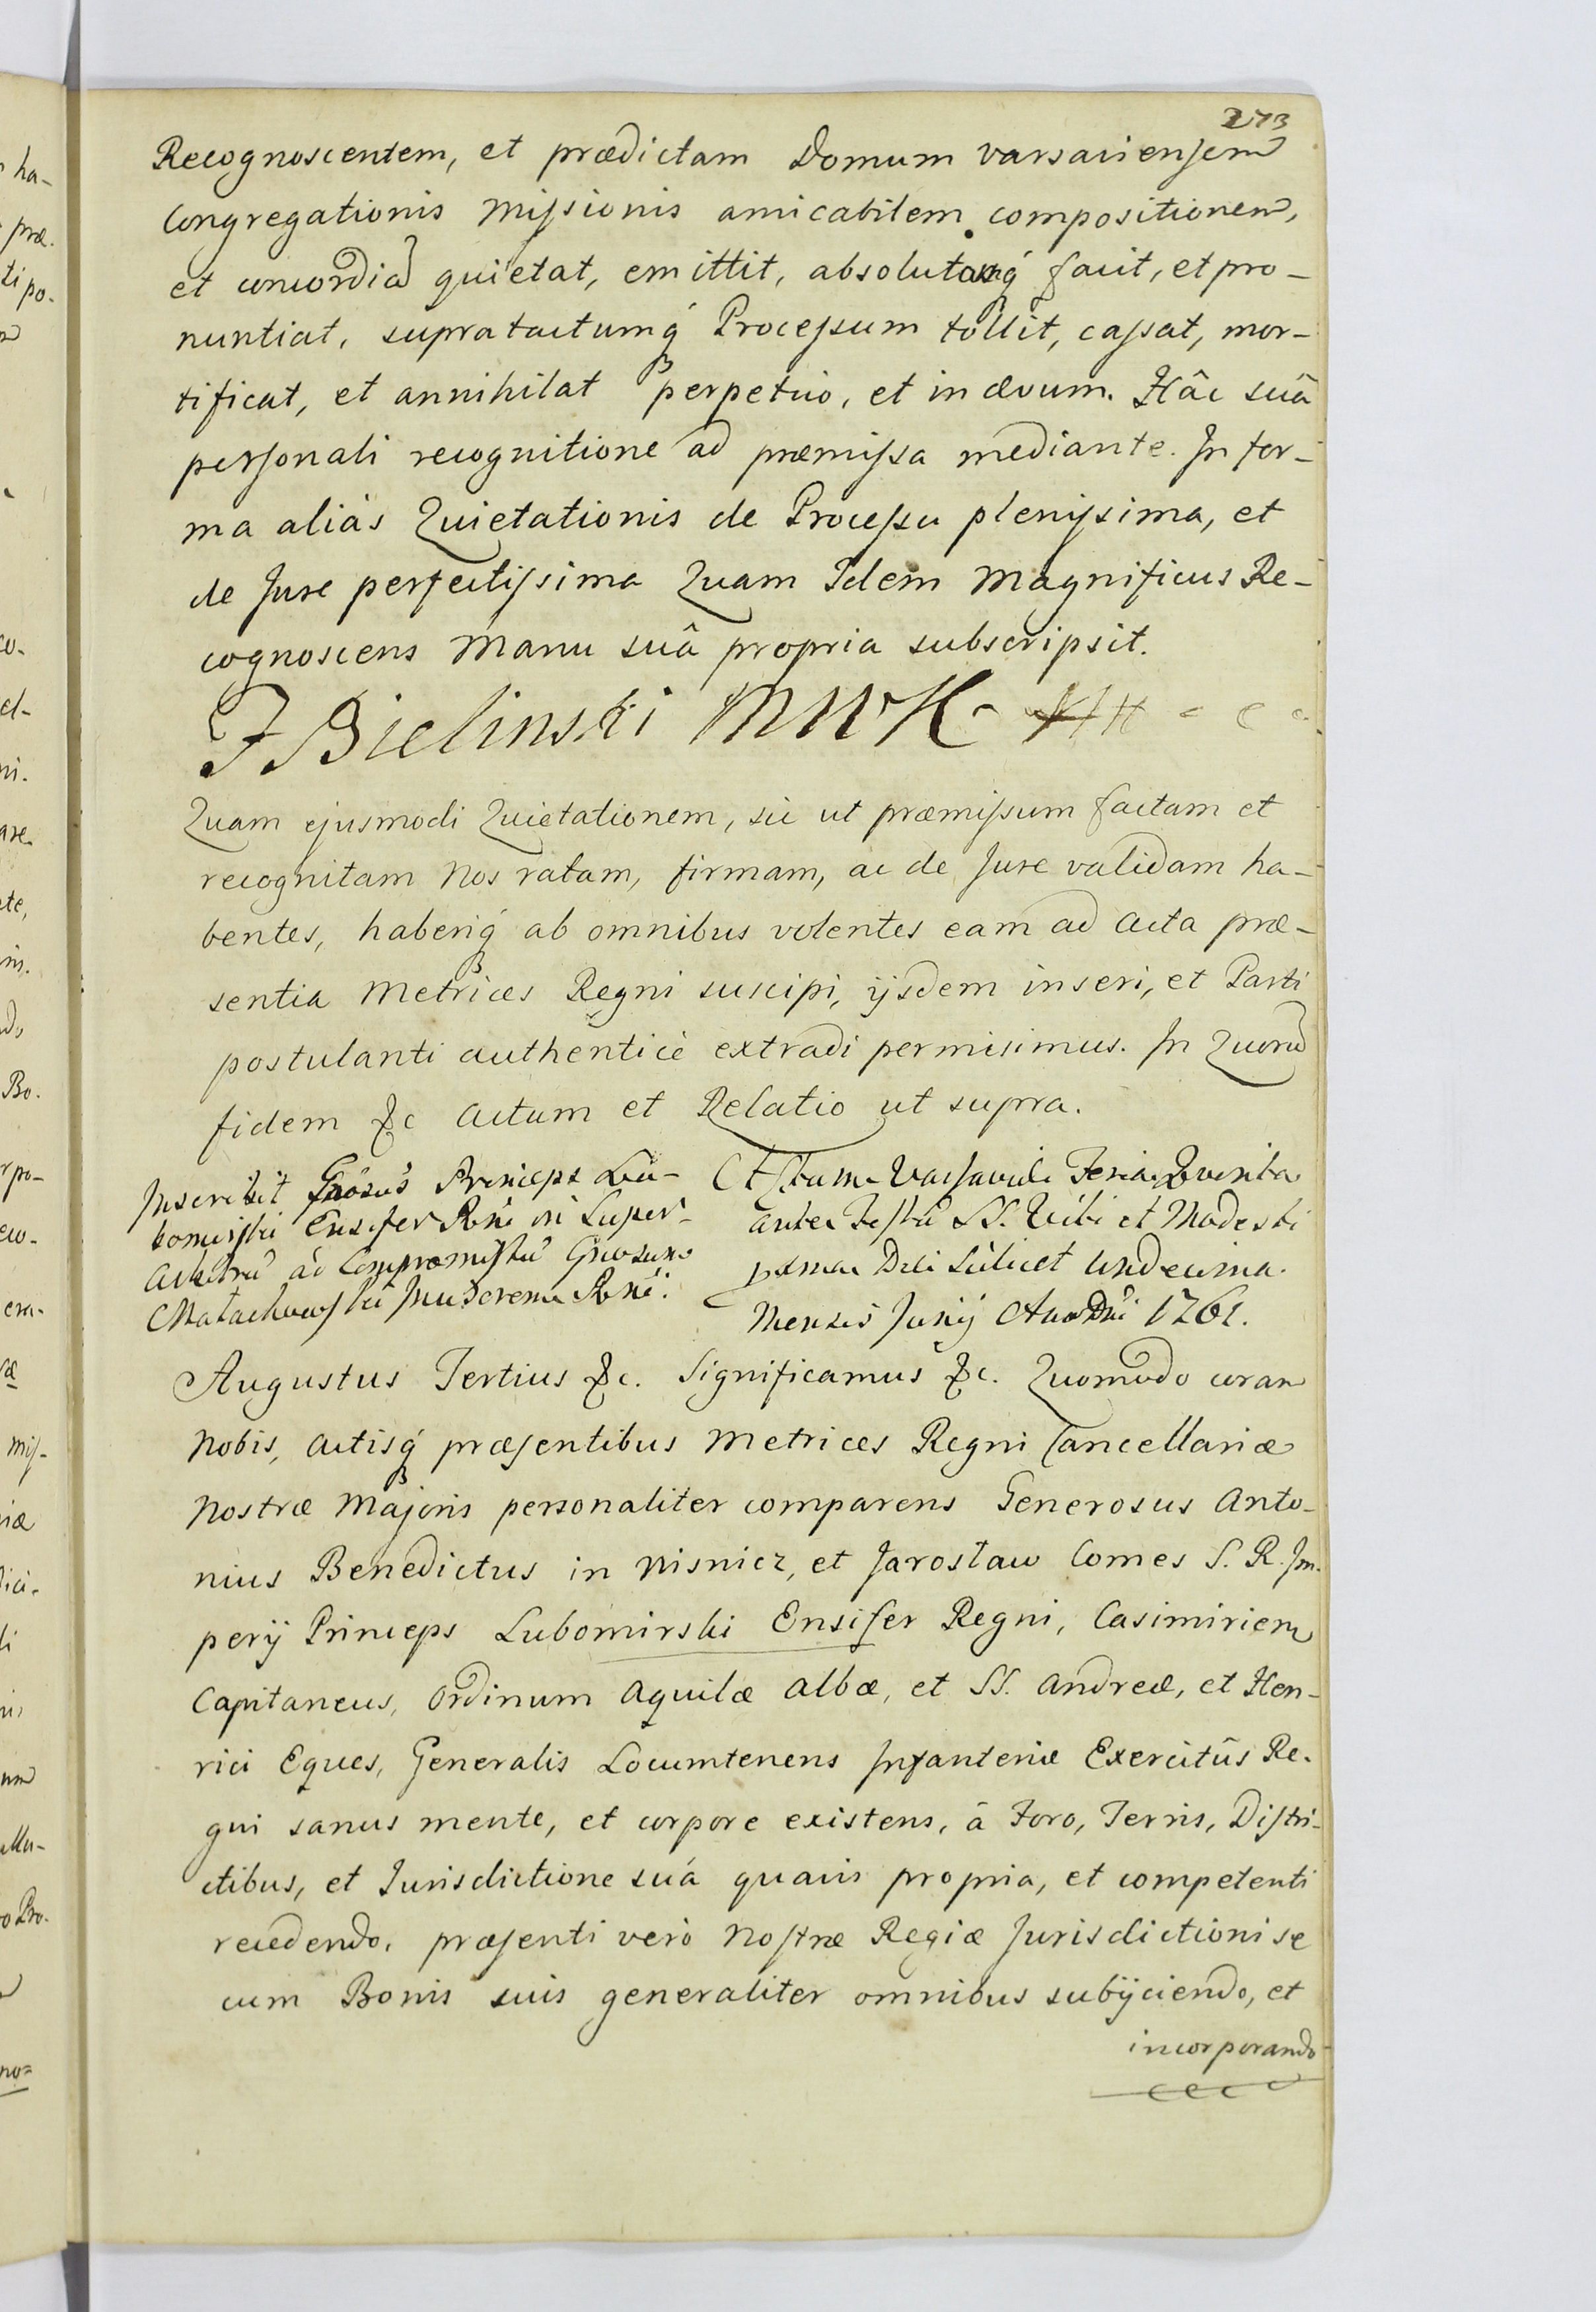 273
Recognoscentem, et prædictam Domum varsaviensem
Congregationis Missionis amicabilem compositionem,
et concordia quietat, emittit, absolutamq́ facit, et pro-
nuntiat, supratactumq́ Processum tollit, cassat, mor-
tificat, et annihilat perpetuo, et in ævum. Hâc suâ
personali recognitione ad præmissa mediante. In for-
ma aliàs Quietationis de Processu plenissima, et
de Jure perfectissima Quam Idem Magnificus Re-
cognoscens Manu suâ propria subscripsit.
F Bielinski MWK
Quam ejusmodi Quietationem, sic ut præmissum factam et
recognitam Nos ratam, firmam, ac de Jure validam ha-
bentes, haberiq́ ab omnibus volentes eam ad Acta præ-
sentia Metrices Regni suscipi, ijsdem inseri, et Parti
postulanti authenticè extradi permisimus. In Quorũ
fidem &c Actum et Relatio ut supra.
Inscribit Gnõsus Princeps Lu-
bomirski Ensifer Rñi in Super-
Arbitrũ ad Compromissũ Gnosum
Małachowski Incisorem Rñi.
Actum Varsaviæ Feria Quinta
ante Festũ SS. Viti et Modesti
pxma Die scilicet Undecima
Mensis Junij Ano Dñi 1761.
Augustus Tertius &c. Significamus &c. Quomodo coram
Nobis, Actisq́ præsentibus Metrices Regni Cancellariæ
Nostræ Majoris personaliter comparens Generosus Anto-
nius Benedictus in Wisnicz, et Jarosław Comes S. R. Im-
perij Princeps Lubomirski Ensifer Regni, Casimirien
Capitaneus, Ordinum Aquilæ Albæ, et SS. Andreæ, et Hen-
rici Eques, Generalis Locumtenens Infanteriæ Exercitûs Re-
gni sanus mente, et corpore existens, à Foro, Terris, Distri-
ctibus, et Jurisdictione suâ quavis propria, et competenti
recedendo, præsenti verò Nostræ Regiæ Jurisdictioni se
cum Bonis suis generaliter omnibus subijciendo, et
incorporando